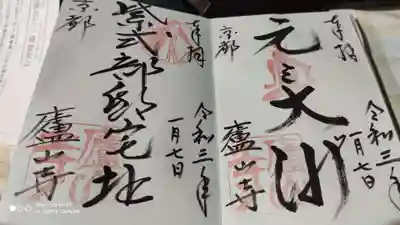 奉拝
令和三年
一月七日
元三大師
京都
廬山寺
奉拝
令和三年
一月七日
紫式部邸宅址
京都
廬山寺